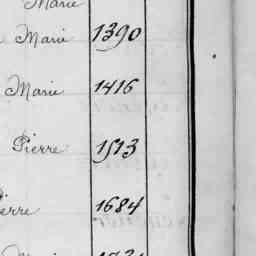 Marie
Marie 1390
Marie 1416
Pierre 1513
Pierre 1684